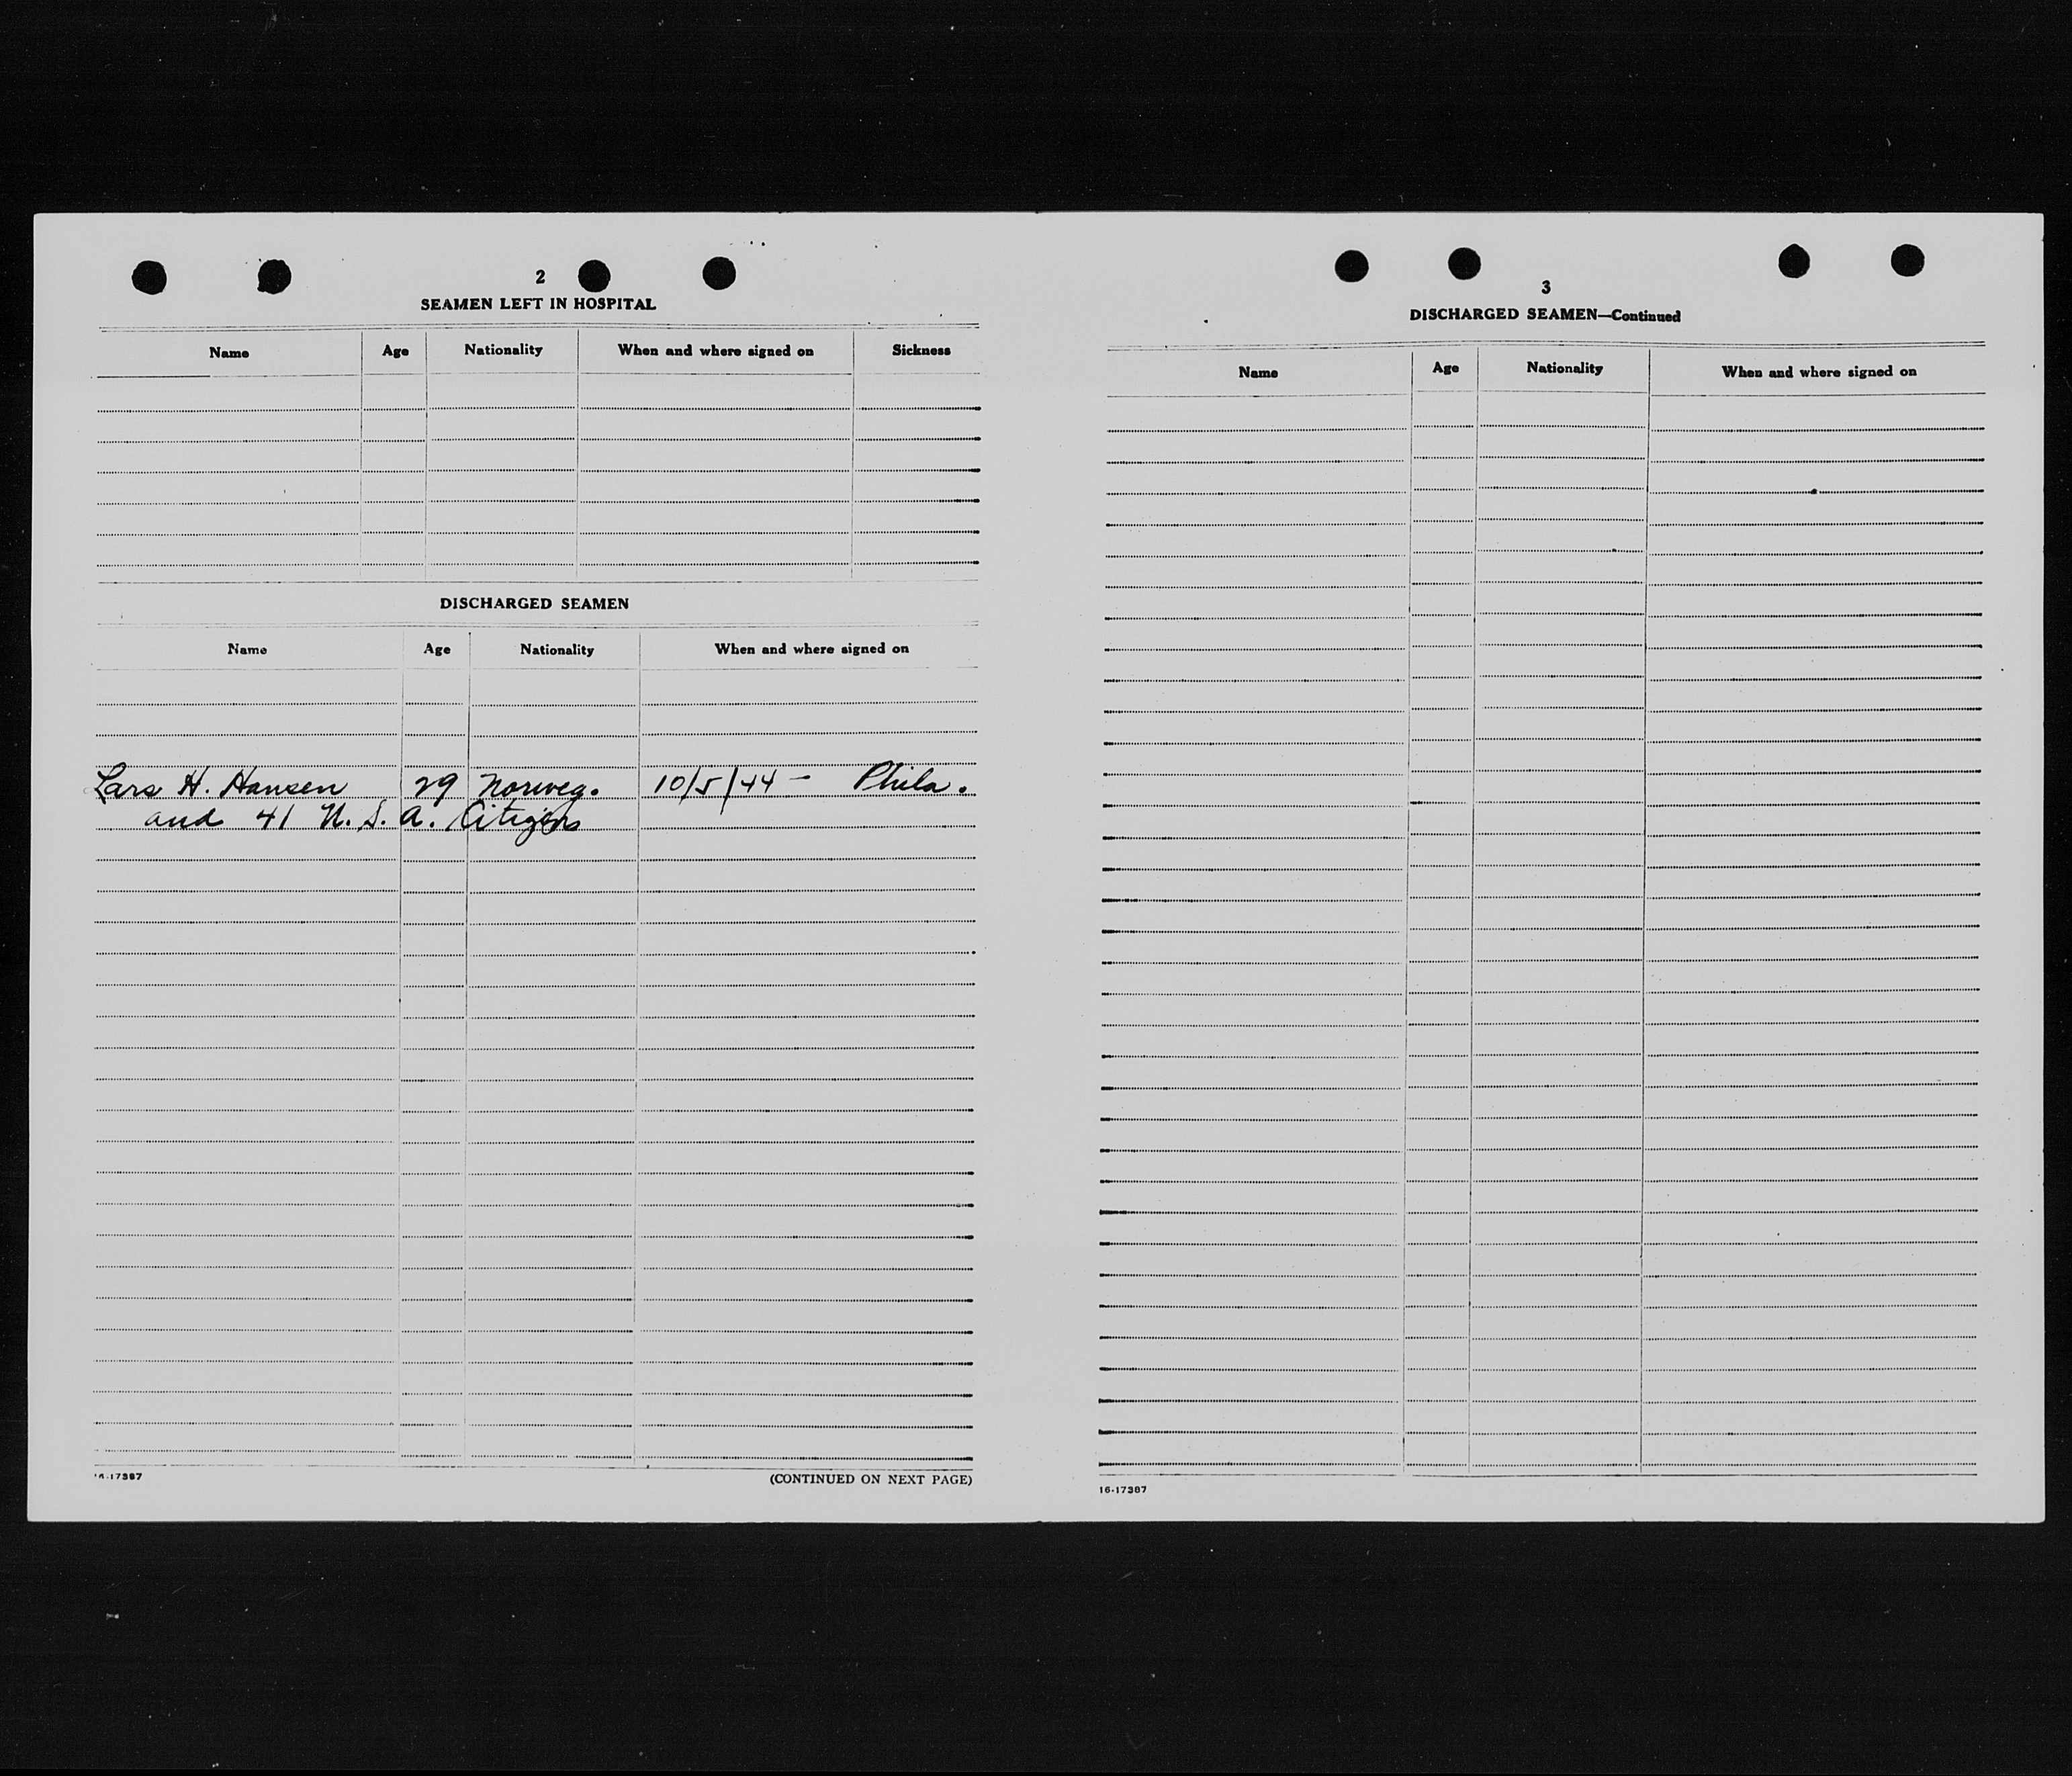 2
SEAMEN LEFT IN HOSPITAL
Name Age Nationality When and where signed on Sickness
DISCHARGED SEAMEN
Name Age Nationality When and where signed on
Lars H. Hansen 29 Norweg. 10/5/44 - Phila.
and 41 U.S.A. Citizens
16-17387
(CONTINUED ON NEXT PAGE)
3
DISCHARGED SEAMEN—Continued
Name Age Nationality When and where signed on
16-17387